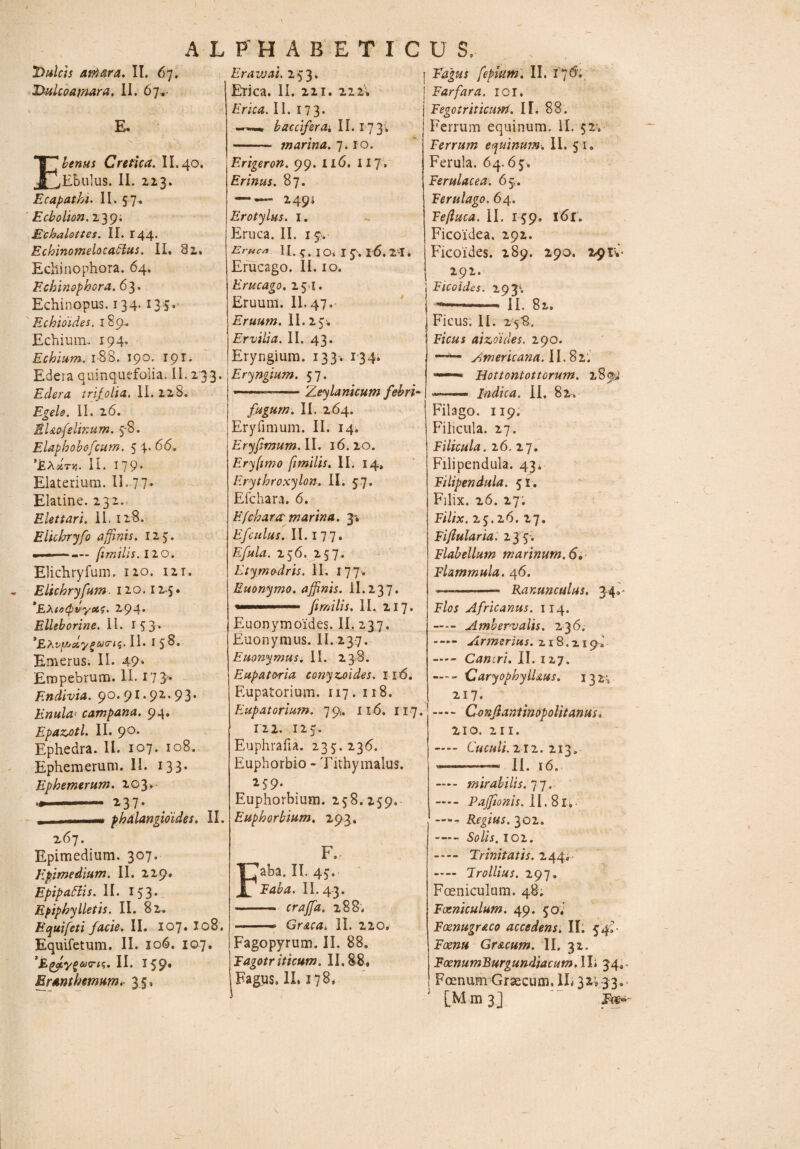 ALPHABETICUS.
Dulcis amara. II. 67.
Dulcoamara. II. 67.
E.
Ebenus Cretica. II. 40.
Ebulus. II. 223.
Ecapathi. II. 57.
Ecbolion. 239.
Echalottes. II. 144.
Echinomelocactus. II. 82.
Echinophora. 64.
Echinophora. 63.
Echinopus. 134. 135.
Echioides. 189.
Echium. 194.
Echium. 188. 190. 191.
Edera quinquefolia. II. 233.
Edera trifolia. II. 228.
Egelo. II. 26.
Elæoselinum. 58.
Elaphoboscum. 54. 66.
Ἐλάτη. II. 179.
Elaterium. II. 77.
Elatine. 232.
Elettari. II. 128.
Elichryso affinis. 125.
——— similis. 120.
Elichrysum. 120. 121.
Elichrysum. 120. 125.
Ἐλιοφύγας. 294.
Elleborine. II. 153.
Ἐλυμάγρωσις. II. 158.
Emerus. II. 49.
Empetrum. II. 173.
Endivia. 90. 91. 92. 93.
Enula campana. 94.
Epazotl. II. 90.
Ephedra. II. 107. 108.
Ephemerum. II. 133.
Ephemerum. 203.
——— 237.
——— phalangioides. II.
267.
Epimedium. 307.
Epimedium. II. 229.
Epipactis. II. 153.
Epiphylletis. II. 82.
Equiseti facie. II. 107. 108.
Equisetum. II. 106. 107.
Ἐράγρωσις. II. 159.
Eranthemum. 35.
Erawai. 253.
Erica. II. 221. 222.
Erica. II. 173.
——— baccifera. II. 173.
——— marina. 7. 10.
Erigeron. 99. 116. 117.
Erinus. 87.
——— 249.
Erotylus. 1.
Eruca. II. 15.
Eruca II. 5. 10. 15. 16. 21.
Erucago. II. 10.
Erucago. 251.
Eruum. II. 47.
Eruum. II. 25.
Ervilia. II. 43.
Eryngium. 133. 134.
Eryngium. 57.
——— Zeylanicum febri-
fugum. II. 264.
Erysimum. II. 14.
Erysimum. II. 16. 20.
Erysimo similis. II. 14.
Erythroxylon. II. 57.
Eschara. 6.
Eschara marina. 3.
Esculus. II. 177.
Esula. 256. 257.
Etymodris. II. 177.
Euonymo. affinis. II. 237.
——— similis. II. 217.
Euonymoïdes. II. 237.
Euonymus. II. 237.
Euonymus. II. 238.
Eupatoria conyzoides. 116.
Eupatorium. 117. 118.
Eupatorium. 79. 116. 117.
122. 125.
Euphrasia. 235. 236.
Euphorbio - Tithymalus.
259.
Euphorbium. 258. 259.
Euphorbium. 293.
F.
Faba. II. 45.
Faba. II. 43.
——— crassa. 288.
——— Græca. II. 220.
Fagopyrum. II. 88.
Fagotriticum. II. 88.
Fagus. II. 178.
Fagus sepium. II. 176.
Farfara. 101.
Fegotriticum. II. 88.
Ferrum equinum. II. 52.
Ferrum equinum. II. 51.
Ferula. 64. 65.
Ferulacea. 65.
Ferulago. 64.
Festuca. II. 159. 161.
Ficoïdea. 292.
Ficoïdes. 289. 290. 291.
292.
Ficoides. 293.
——— II. 82.
Ficus. II. 258.
Ficus aizoides. 290.
—— Americana. II. 82.
—— Hottontottorum. 289.
—— Indica. II. 82.
Filago. 119.
Filicula. 27.
Filicula. 26. 27.
Filipendula. 43.
Filipendula. 51.
Filix. 26. 27.
Filix. 25. 26. 27.
Fistularia. 235.
Flabellum marinum. 6.
Flammula. 46.
——— Ranunculus. 34.
Flos Africanus. 114.
—— Ambervalis. 236.
—— Armerius. 218. 219.
—— Cancri. II. 127.
—— Caryophyllæus. 132.
217.
—— Constantinopolitanus.
210. 211.
—— Cuculi. 212. 213.
——— II. 16.
—— mirabilis. 77.
—— Passionis. II. 81.
—— Regius. 302.
—— Solis. 102.
—— Trinitatis. 244.
—— Trollius. 297.
Fœniculum. 48.
Fœniculum. 49. 50.
Fœnugræco accedens. II. 54.
Fœnu Græcum. II. 32.
FœnumBurgundiacum. II. 34.
Fœnum Græcum. II. 32. 33.
[Mm 3] Fœ-